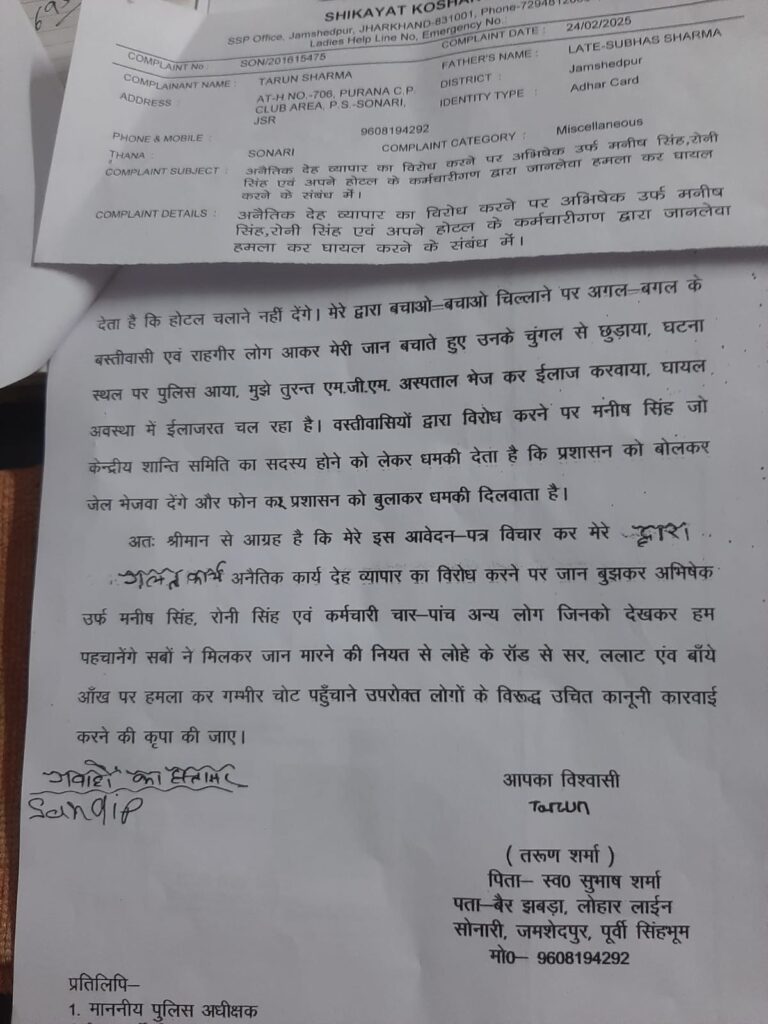 SHIKAYAT
SSP Office, Jamshedpur, JHARKHAND-831001,
Ladies Help Line No, Emergency No.
COMPLAINT No : SON/201615475 COMPLAINT DATE : 24/02/2025
COMPLAINANT NAME : TARUN SHARMA FATHER'S NAME : LATE-SUBHAS SHARMA
ADDRESS : AT-H NO.-706, PURANA C.P. CLUB AREA, P.S.-SONARI, JSR DISTRICT : Jamshedpur
IDENTITY TYPE : Adhar Card
PHONE & MOBILE : 9608194292
THANA : SONARI COMPLAINT CATEGORY : Miscellaneous
COMPLAINT SUBJECT : अनैतिक देह व्यापार का विरोध करने पर अभिषेक उर्फ मनीष सिंह,रोनी
सिंह एवं अपने होटल के कर्मचारीगण द्वारा जानलेवा हमला कर घायल
करने के संबंध में।
COMPLAINT DETAILS : अनैतिक देह व्यापार का विरोध करने पर अभिषेक उर्फ मनीष
सिंह,रोनी सिंह एवं अपने होटल के कर्मचारीगण द्वारा जानलेवा
हमला कर घायल करने के संबंध में।
देता है कि होटल चलाने नहीं देंगे। मेरे द्वारा बचाओ–बचाओ चिल्लाने पर अगल–बगल के
बस्तीवासी एवं राहगीर लोग आकर मेरी जान बचाते हुए उनके चुंगल से छुड़ाया, घटना
स्थल पर पुलिस आया, मुझे तुरन्त एम.जी.एम. अस्पताल भेज कर ईलाज करवाया, घायल
अवस्था में ईलाजरत चल रहा है। वस्तीवासियों द्वारा विरोध करने पर मनीष सिंह जो
केन्द्रीय शान्ति समिति का सदस्य होने को लेकर धमकी देता है कि प्रशासन को बोलकर
जेल भेजवा देंगे और फोन कर प्रशासन को बुलाकर धमकी दिलवाता है।
अतः श्रीमान से आग्रह है कि मेरे इस आवेदन–पत्र विचार कर मेरे द्वारा
गलत कार्य अनैतिक कार्य देह व्यापार का विरोध करने पर जान बुझकर अभिषेक
उर्फ मनीष सिंह, रोनी सिंह एवं कर्मचारी चार–पांच अन्य लोग जिनको देखकर हम
पहचानेंगे सबों ने मिलकर जान मारने की नियत से लोहे के रॉड से सर, ललाट एंव बाँये
आँख पर हमला कर गम्भीर चोट पहुँचाने उपरोक्त लोगों के विरूद्ध उचित कानूनी कारवाई
करने की कृपा की जाए।
गवाहों का
Sandip
आपका विश्वासी
Tarun
( तरूण शर्मा )
पिता– स्व0 सुभाष शर्मा
पता–बैर झबड़ा, लोहार लाईन
सोनारी, जमशेदपुर, पूर्वी सिंहभूम
मो0– 9608194292
प्रतिलिपि–
1. माननीय पुलिस अधीक्षक